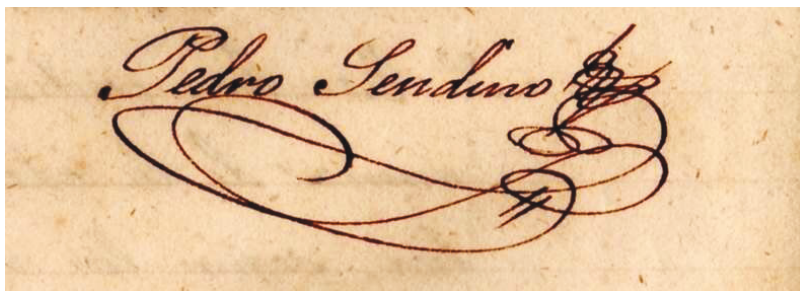 Pedro Sendino